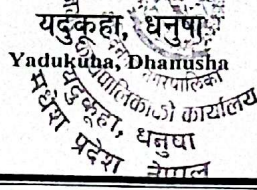 यदुकुहा, धनुषा
Yadukuha, Dhanusha
नगरपालिका
कार्यपालिकाको कार्यालय
यदुकूहा, धनुषा
मधेश प्रदेश नेपाल